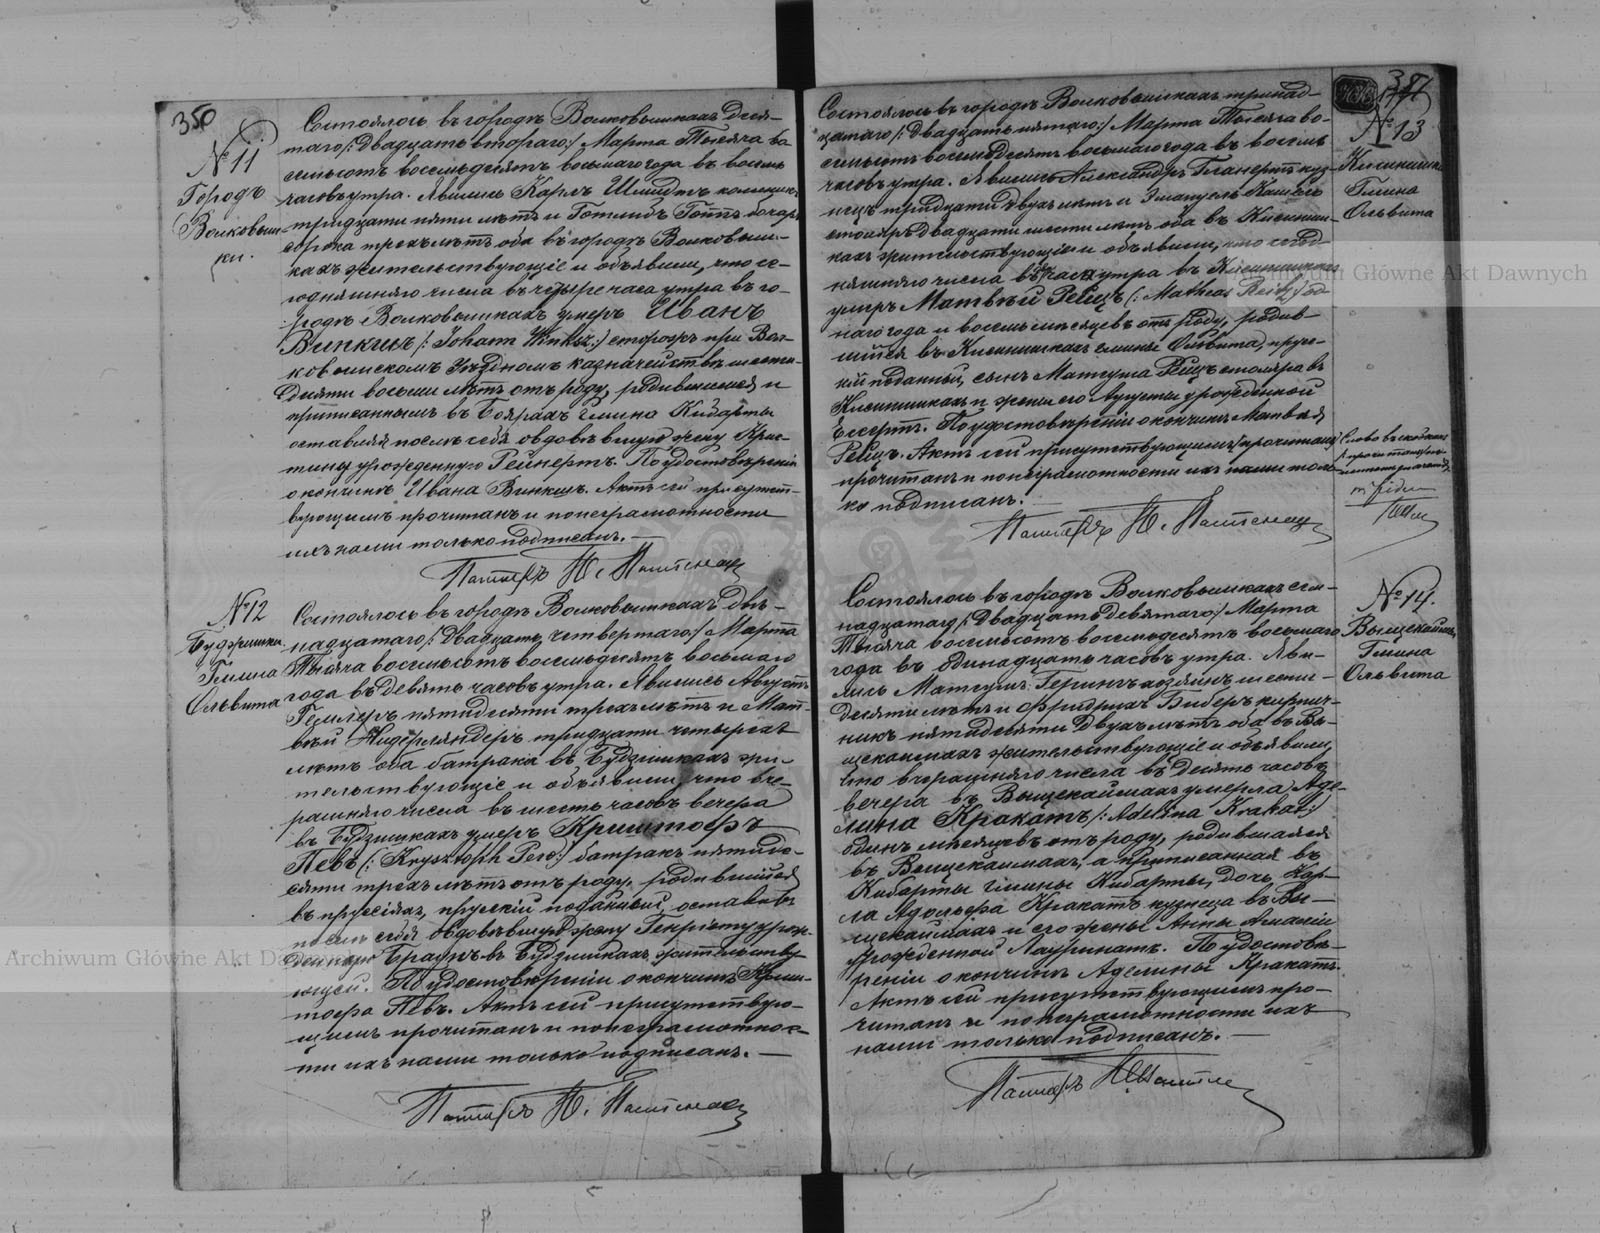 350
№ 11
Городъ
Волковыш-
ки.
Состоялось въ городѣ Волковышкахъ деся-
таго /: двадцать втораго :/ Марта Тысяча во-
семьсотъ восемьдесятъ восьмаго года въ восемь
часовъ утра. Явились Карлъ Шмидтъ
тридцати пяти лѣтъ и Готлибъ Гоппъ бочаръ
сорока трехъ лѣтъ оба въ городѣ Волковыш-
кахъ жительствующіе и объявили, что се-
годняшняго числа въ четыре часа утра въ го-
родѣ Волковышкахъ умеръ Иванъ
Винкшъ /: Johann Winksz :/ сторожъ при Вол-
ковышскомъ Уѣздномъ казначействѣ шести-
десяти восьми лѣтъ отъ роду, родившимся и
приписаннымъ въ Боярахъ гмина Кибарты
оставивъ послѣ себя овдовѣвшую жену Крис-
тину урожденную Рейнертъ. По удостовѣреніи
о кончинѣ Ивана Винкшъ. Актъ сей присутст-
вующимъ прочитанъ и по неграмотности
ихъ нами только подписанъ. —
Пасторъ
№ 12
Будзишки
Гмина
Ольвита
Состоялось въ городѣ Волковышкахъ двѣ-
надцатаго /: двадцать четвертаго :/ Марта
Тысяча восемьсотъ восемьдесятъ восьмаго
года въ девять часовъ утра. Явились Августъ
пятидесяти трехъ лѣтъ и Мат-
вѣй Нидерляндеръ тридцати четырехъ
лѣтъ оба батрака въ Будзишкахъ жи-
тельствующіе и объявили, что вче-
рашняго числа въ шесть часовъ вечера
въ Будзишкахъ умеръ Криштофъ
Певъ /: Krysztoph Pew :/ батракъ пятиде-
сяти трехъ лѣтъ отъ роду, родившійся
въ пруссіяхъ, прусскій подданный, оставивъ
послѣ себя овдовѣвшую жену Генріету урож-
денную Браунъ въ Будзишкахъ жительству-
ющей. По удостовѣреніи о кончинѣ Криш-
тофа Певъ. Актъ сей присутствую-
щимъ прочитанъ и по неграмотнос-
ти ихъ нами только подписанъ. —
Пасторъ
№ 13
Кисинишки
Гмина
Ольвита
Состоялось въ городѣ Волковышкахъ тринад-
цатаго /: двадцать пятаго :/ Марта Тысяча во-
семьсотъ восемьдесятъ восьмаго года въ восемь
часовъ утра. Явились Александръ Гланертъ куз-
нецъ тридцати двухъ лѣтъ и Эмануель
столяръ двадцати шести лѣтъ оба въ Кисиниш-
кахъ жительствующіе и объявили, что сегод-
няшняго числа въ часа утра въ Кисинишкахъ
умеръ Матвѣй Рейцъ /: Matheas Reitz :/ од-
наго года и восемь мѣсяцевъ отъ роду, родив-
шійся въ Кисинишкахъ гмины Ольвита, прус-
кій подданный, сынъ Матеуша Рейцъ столяра въ
Кисинишкахъ и жены его Августы урожденной
Ессертъ. По удостовѣреніи о кончинѣ Матвѣя
Рейцъ. Актъ сей присутствующимъ /прочитанъ/
прочитанъ и по неграмотности ихъ нами толь-
ко подписанъ. —
Слово въ скобкахъ
Пасторъ
№ 14.
Выщекаймы,
Гмина
Ольвита
Состоялось въ городѣ Волковышкахъ сем-
надцатаго /: Двадцать девятаго :/ Марта
Тысяча восемьсотъ восемьдесятъ восьмаго
года въ одинадцать часовъ утра. Яви-
лись Матеушъ Герингъ хозяинъ шести-
десяти лѣтъ и Фридрихъ Биберъ кирпич-
никъ пятидесяти двухъ лѣтъ оба въ Вы-
щекаймахъ жительствующіе и объявили,
что вчерашняго числа въ десять часовъ
вечера въ Выщекаймахъ умерла Аде-
лина Кракатъ /: Adelina Krakat :/
одинъ мѣсяцевъ отъ роду, родившаяся
въ Выщекаймахъ, а приписанная въ
Кибарты гмины Кибарты, дочь Кар-
ла Адольфа Кракатъ кузнеца въ Вы-
щекаймахъ и его жены Анны Амаліи
урожденной Лауринатъ. По удостовѣ-
реніи о кончинѣ Аделины Кракатъ.
Актъ сей присутствующимъ про-
читанъ и по неграмотности ихъ
нами только подписанъ. —
Пасторъ
Archiwum Główne Akt Dawnych
Archiwum Główne Akt Dawnych